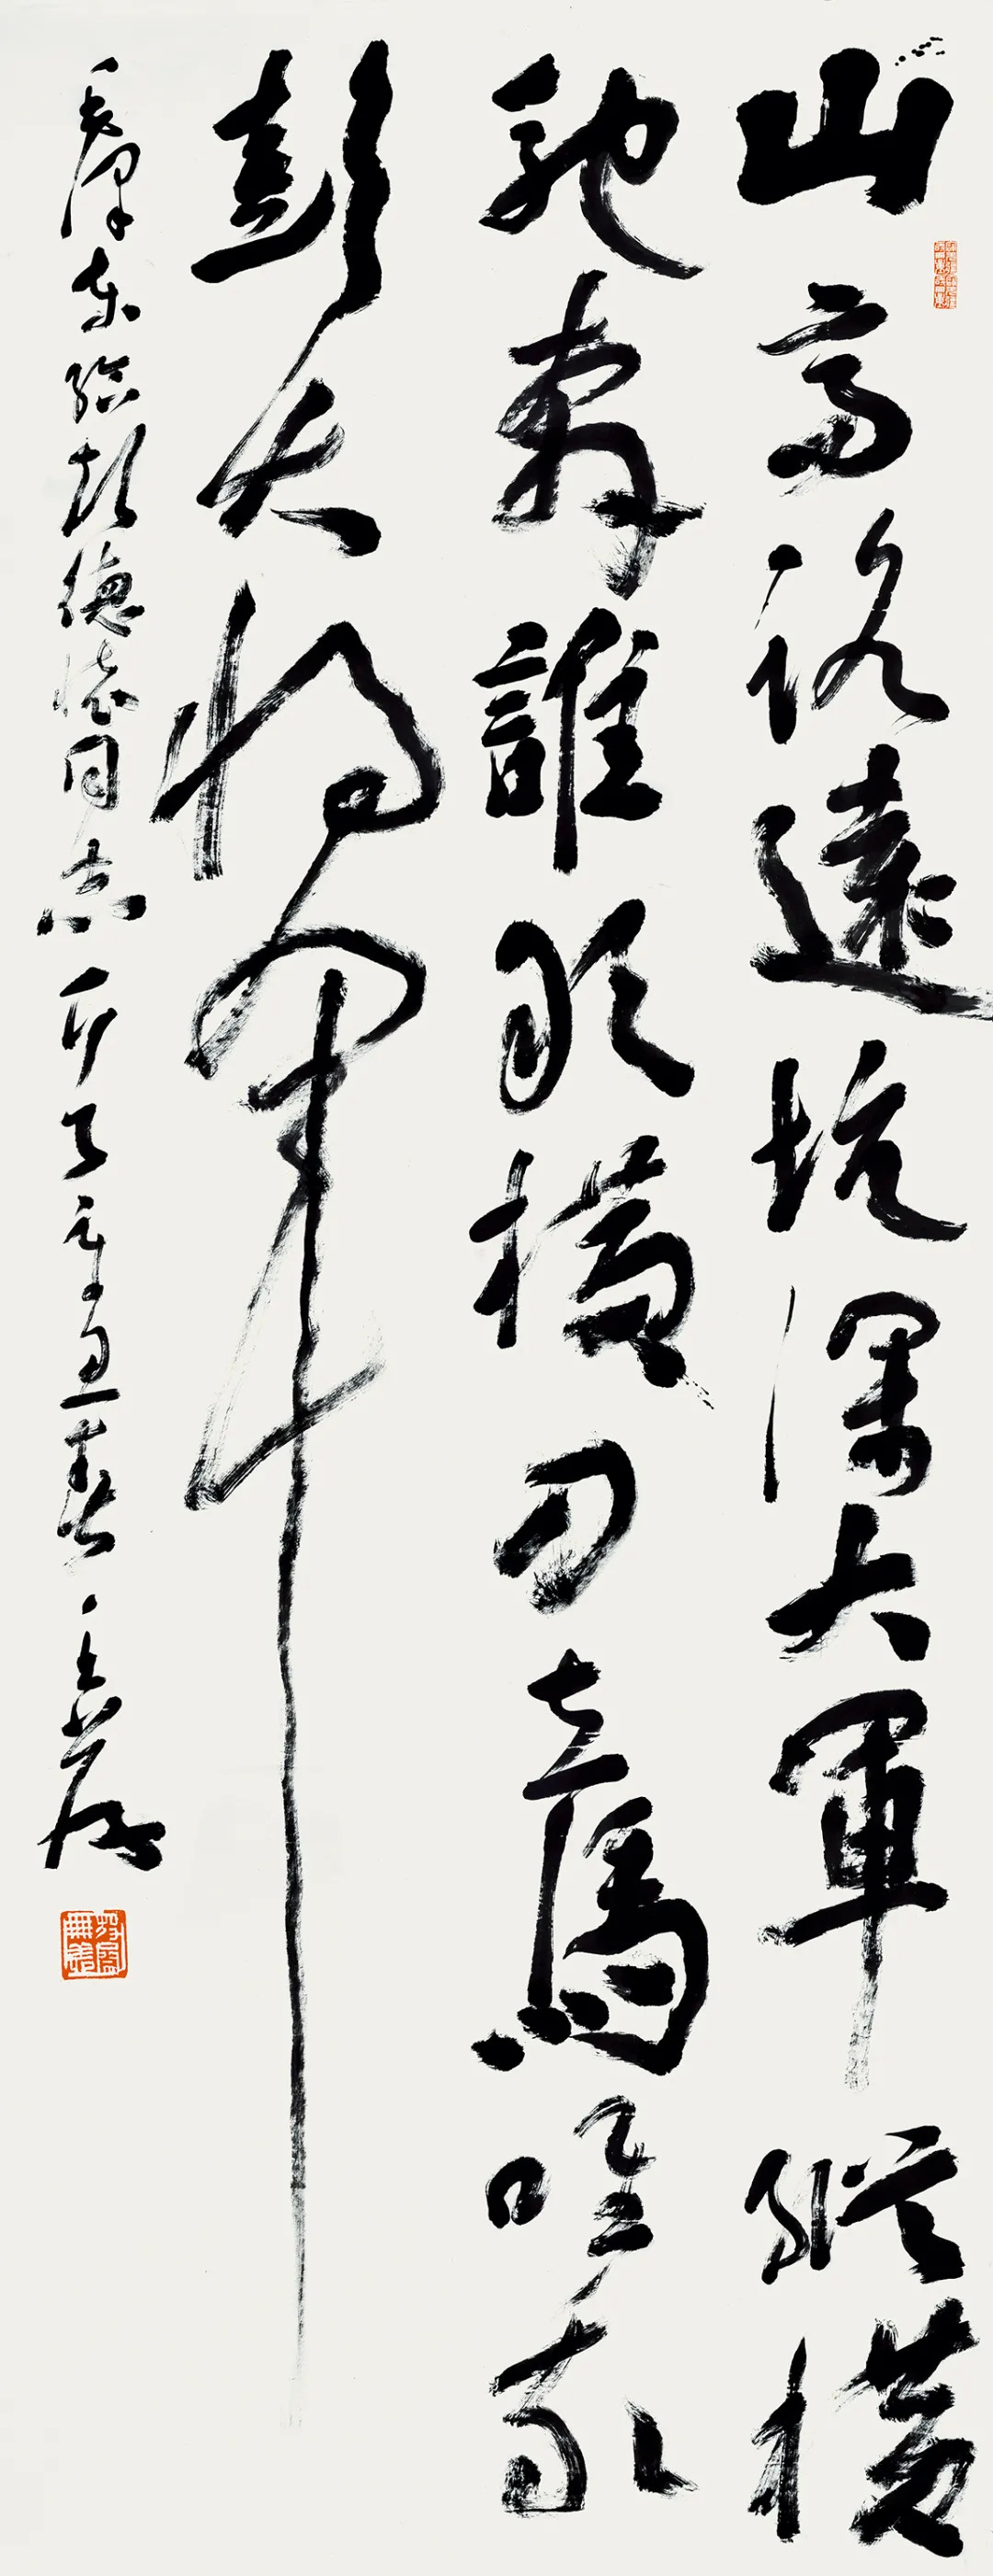 山高路遠坑深大軍縱橫
馳奔誰敢橫刀立馬唯我
彭大將軍
毛澤東給彭德懷同志 辛丑春